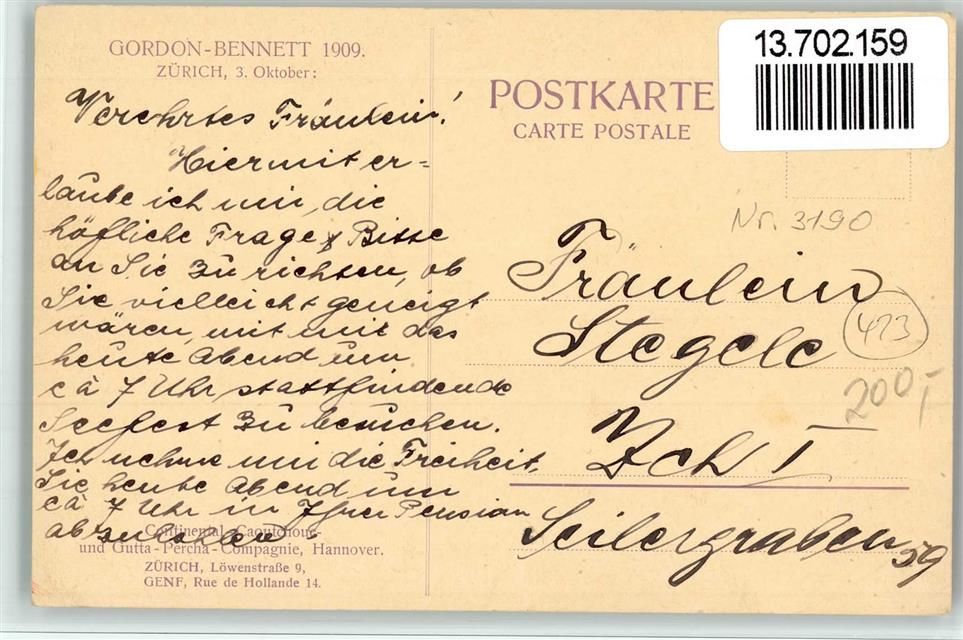 GORDON-BENNETT 1909.
ZÜRICH, 3. Oktober:
Verehrtes Fräulein!
Hiermit er=
laube ich mir, die
höfliche Frage & Bitte
an Sie zu richten, ob
Sie vielleicht geneigt
wären, mit mir das
heute Abend um
ca 7 Uhr stattfindende
Seefest zu besuchen.
Ich nehme mir die Freiheit,
Sie heute Abend um
ca 7 Uhr in Ihrer Pension
abzuholen
Continental-Caoutchouc-
und Gutta-Percha-Compagnie, Hannover.
ZÜRICH, Löwenstraße 9,
GENF, Rue de Hollande 14.
POSTKARTE
CARTE POSTALE
13.702.159
Nr. 3190
Fräulein
Stegele
423
200,-
Zch I
Seilergraben 59